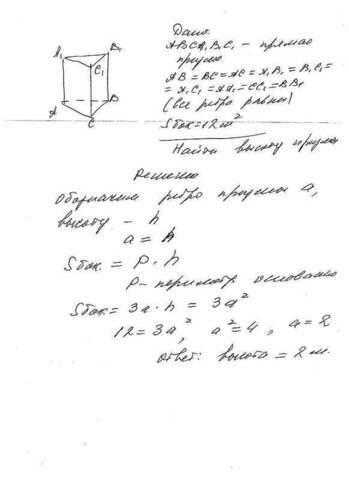 A₁
B₁
C₁
A
B
C
Дано:
ABCA₁B₁C₁ - прямая
призма
AB = BC = AC = A₁B₁ = B₁C₁ =
= A₁C₁ = AA₁ = CC₁ = BB₁
(все ребра равны)
Sбок = 12 м²
Найти высоту призмы
Решение
Обозначим ребро призмы a,
высоту - h
a = h
Sбок = P · h
P - периметр основания
Sбок = 3a · h = 3a²
12 = 3a², a² = 4, a = 2
Ответ: высота = 2 м.